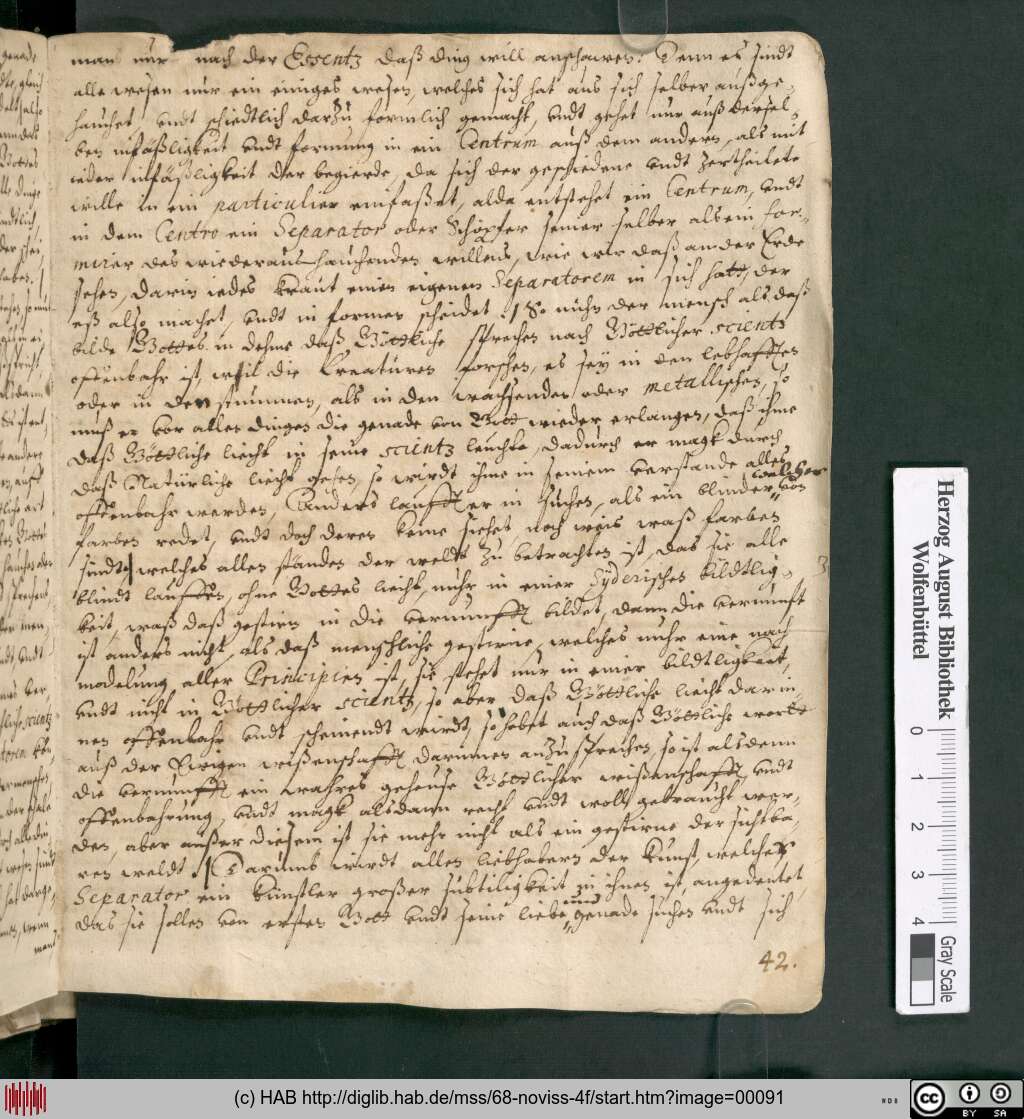 man nur nach der Essentz daß ding will anschawen. Denn es sindt
alle wesen nur ein einiges wesen, welches sich hat aus sich selber außge-
hauchet, undt schiedtlich darzu formlich gemacht, undt gehet nur auß dersel-
ben infäßligkeit undt formung in ein Centrum auß dem andern, als mit
ieder infäßligkeit der begierde, da sich der geschiedene undt zertheilete
wille in ein particulier einfaßet, alda entstehet ein Centrum, undt
in dem Centro ein Separator oder Schöpfer seiner selber als ein for-
mirer des wiederauß hauchenden willens, wie wir daß an der Erde
sehen, darin iedes kraut einen eigenen Separatorem in sich hatt, der
eß also machet, undt in formen scheidet. So nuhn der mensch als daß
bilde Gottes in dehme daß Göttliche sprechen nach Göttlicher scientz
offenbahr ist, will die Creaturen forschen, es sey in den lebhafften
oder in den stummen, als in den wachsenden oder metallischen, so
muß er vor allen dingen die genade von Gott wieder erlangen, daß ihme
daß Göttliche liecht in seine scientz leuchte, dadurch er magk durch
daß Natürliche liecht gehen, so wirdt ihme in seinem verstande alles
offenbahr werden, Anders laufft er in suchen, als ein blinder welcher von
farben redet, undt doch deren keine siehet noch weis waß farben
sindt, welches allen ständen der weldt zu betrachten ist, das sie alle
blindt lauffen, ohne Gottes liecht, nuhr in einer Syderischen bildtlig-
keit, waß daß gestirn in die vernunfft bildet, dann die vernunft
ist anders nicht, als daß menschliche gestirne, welches nuhr eine nach
modelung aller Principien ist, sie stehet nur in einer bildtligkeit,
undt nicht in Göttlicher scientz, so aber daß Göttliche liecht darin-
nen offenbahr undt scheinendt wirdt, so hebet auch daß Göttliche wortt
auß der Ewigen wißenschafft darinnen anzu sprechen, so ist alsdenn
die vernunfft ein wahres geheuse Göttlicher wißenschafft undt
offenbahrung, undt magk alsdann recht undt woll gebraucht wer-
den, aber außer diesem ist sie mehr nicht als ein gestirne der sichtba-
ren weldt. Darumb wirdt allen liebhabern der Kunst, welcher
Separator ein künstler großer subtiligkeit in ihnen ist, angedeutet,
das sie sollen von ersten Gott undt seine liebe und genade suchen undt sich
42.
3
Herzog August Bibliothek
Wolfenbüttel
0 1 2 3 4
Gray Scale
(c) HAB http://diglib.hab.de/mss/68-noviss-4f/start.htm?image=00091
cc BY SA